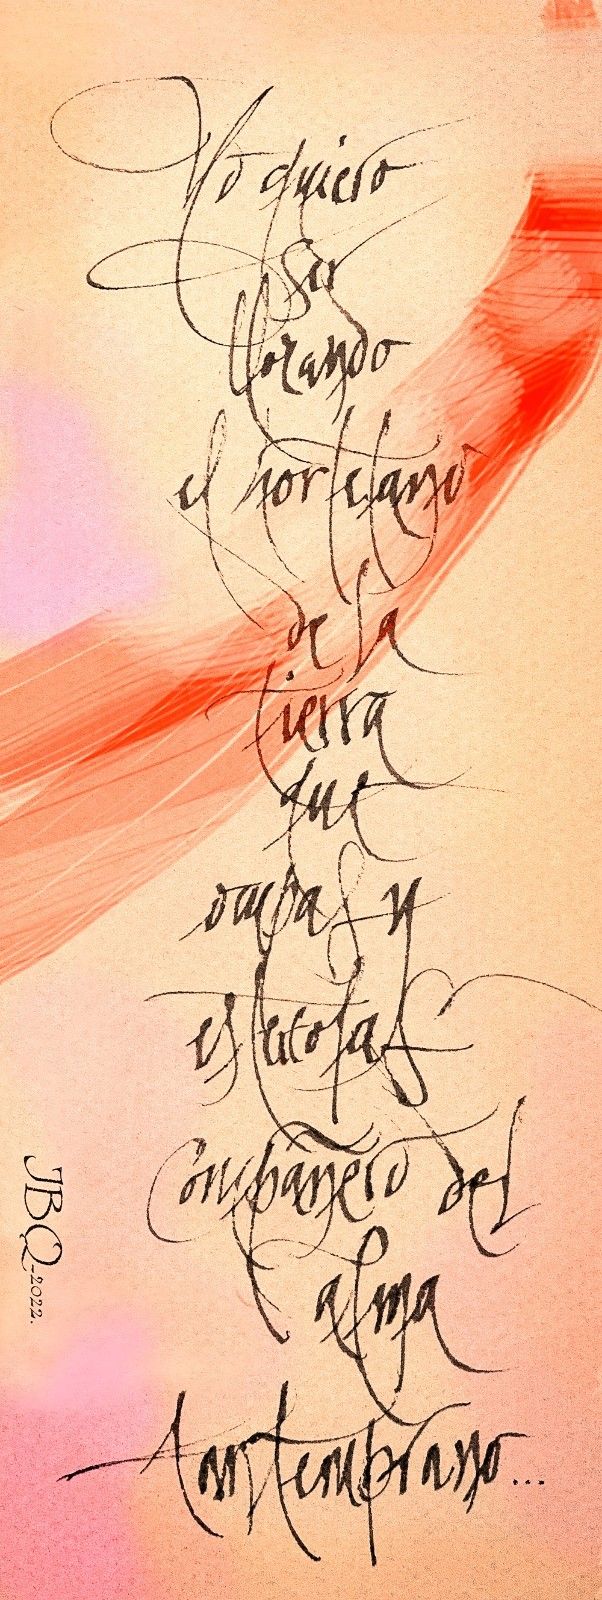 Yo quiero
ser
llorando
el hortelano
de la
tierra
que
ocupas y
estercolas
Compañero del
alma
tan temprano...
JBQ-2022.